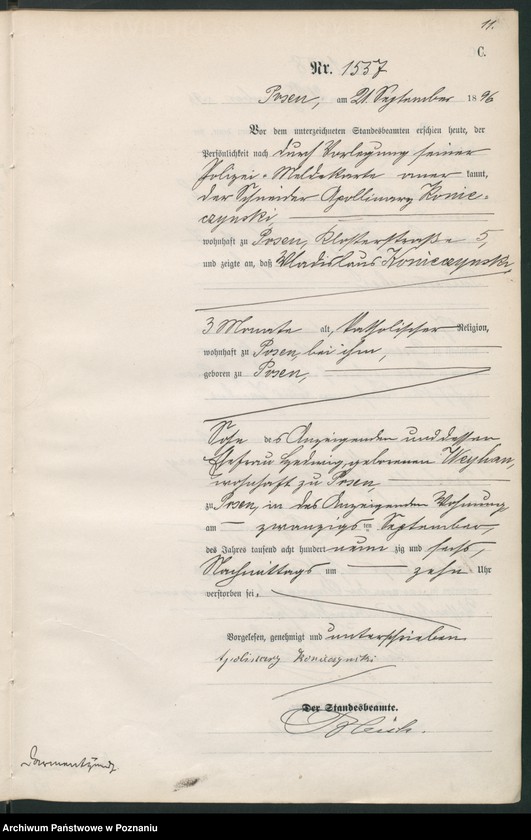 11.
C.
Nr. 1557
Posen, am 21. September 1896
Vor dem unterzeichneten Standesbeamten erschien heute, der
Persönlichkeit nach durch Vorlegung seiner
Polizei-Meldekarte aner kannt,
der Schneider Apollinary Konie-
czynski,
wohnhaft zu Posen, Klosterstraße 5,
und zeigte an, daß Wladislaus Konieczynski,
3 Monate alt, katholischer Religion,
wohnhaft zu Posen, bei ihm,
geboren zu Posen,
Sohn des Anzeigenden und dessen
Ehefrau Hedwig, geborenen
wohnhaft zu Posen,
zu Posen, in des Anzeigenden Wohnung
am zwanzigs ten September,
des Jahres tausend acht hundert neun zig und sechs,
Nachmittags um zehn Uhr
verstorben sei.
Vorgelesen, genehmigt und unterschrieben
Apolinary Konieczynski
Der Standesbeamte.
Darmentzünd
Archiwum Państwowe w Poznaniu